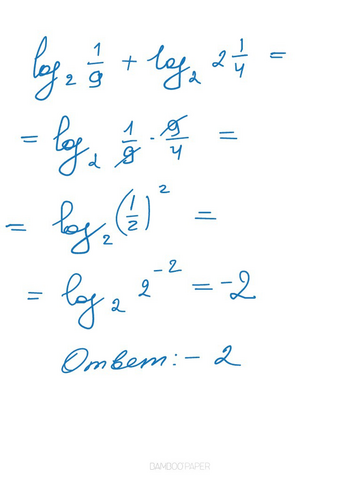 log₂ 1/9 + log₂ 2 1/4 =
= log₂ 1/9 · 9/4 =
= log₂ (1/2)² =
= log₂ 2⁻² = -2
Ответ: - 2
BAMBOO PAPER